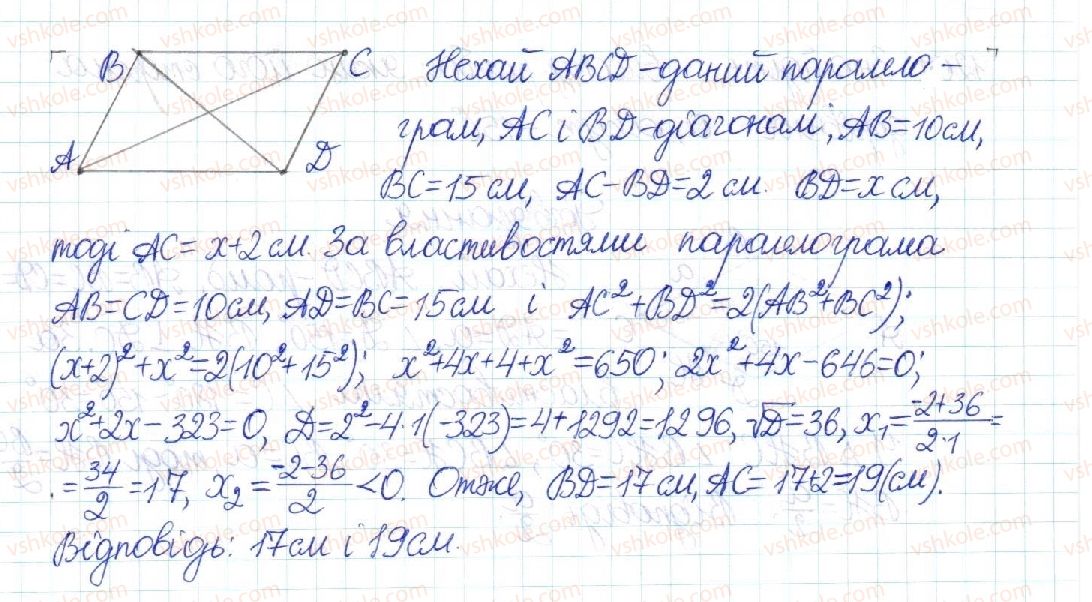 B C Нехай ABCD-даний паралело-
грам, AC і BD-діагоналі, AB=10см,
A D
BC=15 см, AC-BD=2 см. BD=x см,
тоді AC=x+2 см. За властивостями паралелограма
AB=CD=10см, AD=BC=15см і AC²+BD²=2(AB²+BC²);
(x+2)²+x²=2(10²+15²); x²+4x+4+x²=650; 2x²+4x-646=0;
x²+2x-323=0, D=2²-4·1(-323)=4+1292=1296, √D=36, x₁=(-2+36)/(2·1)=
=34/2=17, x₂=(-2-36)/2<0. Отже, BD=17см, AC=17+2=19(см).
Відповідь: 17см і 19см.
vshkole.com